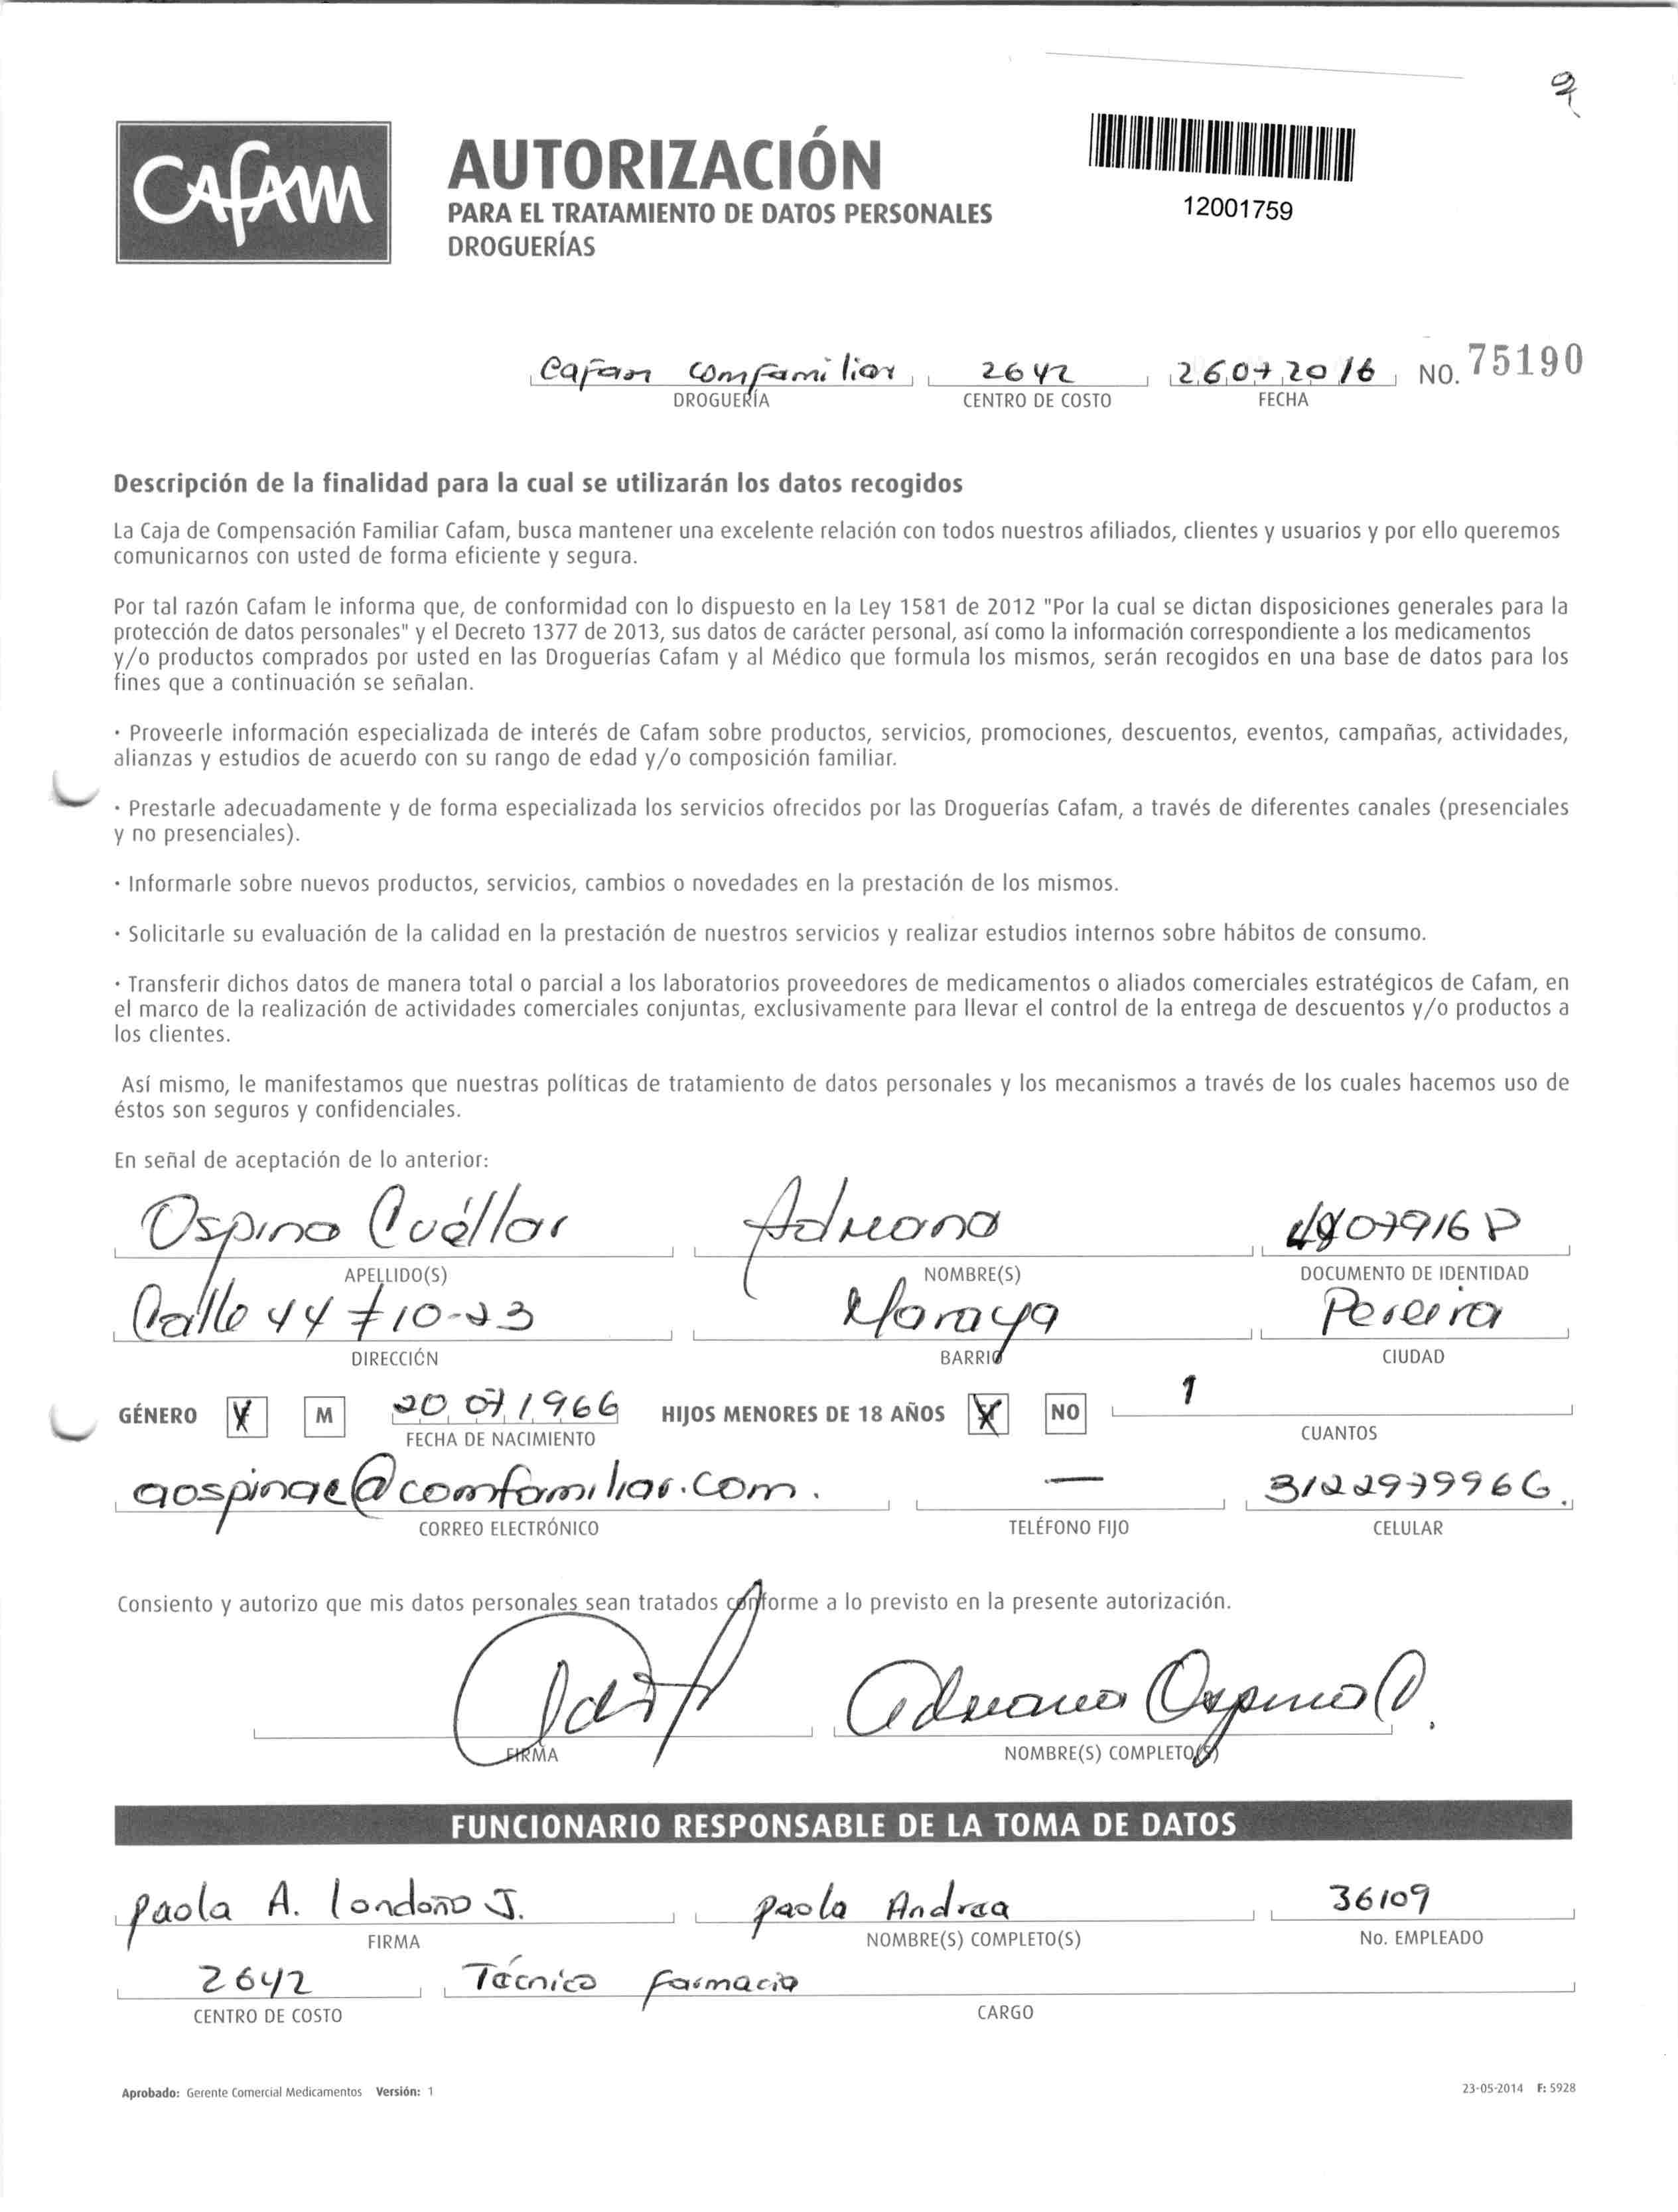 CAFAM
AUTORIZACIÓN
PARA EL TRATAMIENTO DE DATOS PERSONALES
DROGUERÍAS
12001759
Cafam comfamiliar 2642 26 07 2016 NO. 75190
DROGUERÍA CENTRO DE COSTO FECHA
Descripción de la finalidad para la cual se utilizarán los datos recogidos
La Caja de Compensación Familiar Cafam, busca mantener una excelente relación con todos nuestros afiliados, clientes y usuarios y por ello queremos
comunicarnos con usted de forma eficiente y segura.
Por tal razón Cafam le informa que, de conformidad con lo dispuesto en la Ley 1581 de 2012 "Por la cual se dictan disposiciones generales para la
protección de datos personales" y el Decreto 1377 de 2013, sus datos de carácter personal, así como la información correspondiente a los medicamentos
y/o productos comprados por usted en las Droguerías Cafam y al Médico que formula los mismos, serán recogidos en una base de datos para los
fines que a continuación se señalan.
· Proveerle información especializada de interés de Cafam sobre productos, servicios, promociones, descuentos, eventos, campañas, actividades,
alianzas y estudios de acuerdo con su rango de edad y/o composición familiar.
· Prestarle adecuadamente y de forma especializada los servicios ofrecidos por las Droguerías Cafam, a través de diferentes canales (presenciales
y no presenciales).
· Informarle sobre nuevos productos, servicios, cambios o novedades en la prestación de los mismos.
· Solicitarle su evaluación de la calidad en la prestación de nuestros servicios y realizar estudios internos sobre hábitos de consumo.
· Transferir dichos datos de manera total o parcial a los laboratorios proveedores de medicamentos o aliados comerciales estratégicos de Cafam, en
el marco de la realización de actividades comerciales conjuntas, exclusivamente para llevar el control de la entrega de descuentos y/o productos a
los clientes.
Así mismo, le manifestamos que nuestras políticas de tratamiento de datos personales y los mecanismos a través de los cuales hacemos uso de
éstos son seguros y confidenciales.
En señal de aceptación de lo anterior:
Ospina Cuéllar Adriana
APELLIDO(S) NOMBRE(S) DOCUMENTO DE IDENTIDAD
Calle 44 # 10-23 Maraya Pereira
DIRECCIÓN BARRIO CIUDAD
GÉNERO M 20 07 1966 HIJOS MENORES DE 18 AÑOS NO 1
FECHA DE NACIMIENTO CUANTOS
aospinac@comfamiliar.com. — 3122979966.
CORREO ELECTRÓNICO TELÉFONO FIJO CELULAR
Consiento y autorizo que mis datos personales sean tratados conforme a lo previsto en la presente autorización.
Adriana Ospina C.
FIRMA NOMBRE(S) COMPLETO(S)
FUNCIONARIO RESPONSABLE DE LA TOMA DE DATOS
paola A. londoño J. paola Andrea 36109
FIRMA NOMBRE(S) COMPLETO(S) No. EMPLEADO
2642 Técnico farmacia
CENTRO DE COSTO CARGO
Aprobado: Gerente Comercial Medicamentos Versión: 1 23-05-2014 F: 5928